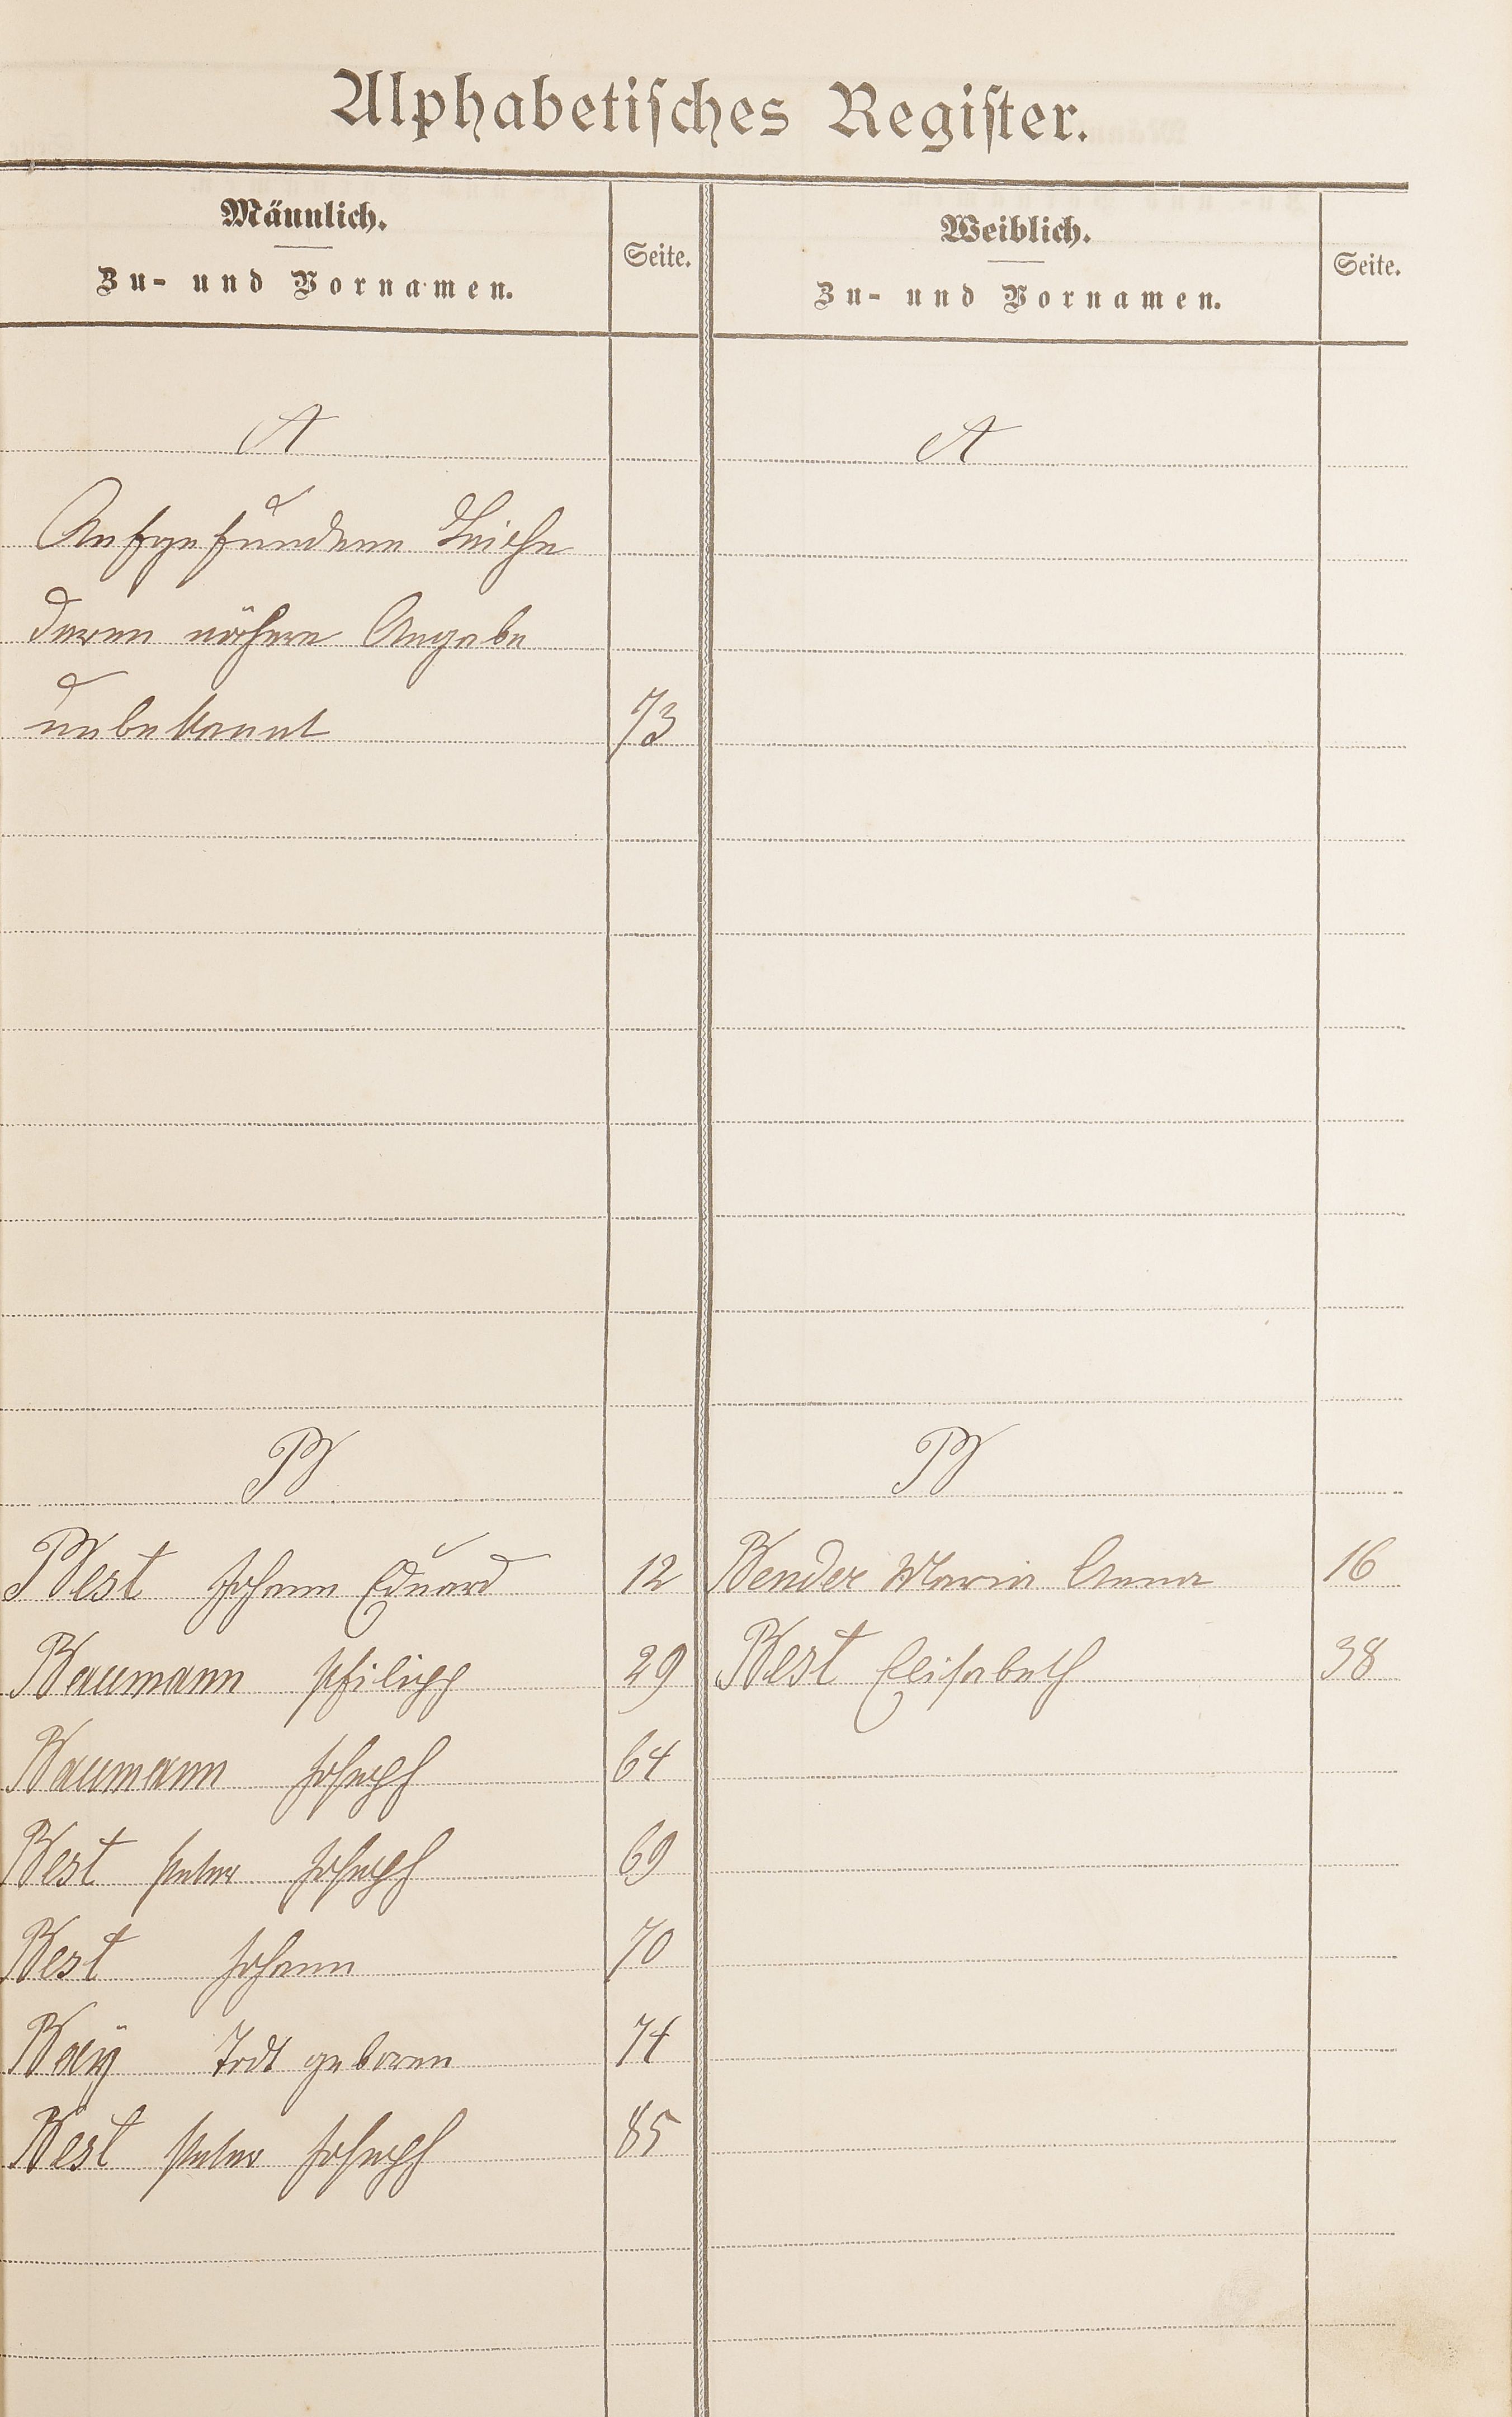 Alphabetisches Register.
Männlich.
Zu- und Vornamen.
Seite.
Weiblich.
Zu- und Vornamen.
Seite.
A
A
Aufgefundene Leiche
deren nähere Angabe
unbekannt 73
B
B
Best Johann Eduard 12
Bender Maria Anna 16
Baumann Philipp 29
Best Elisabeth 38
Baumann Joseph 64
Best Peter Joseph 69
Best Johann 70
Baÿ Todt geboren 74
Best Peter Joseph 85